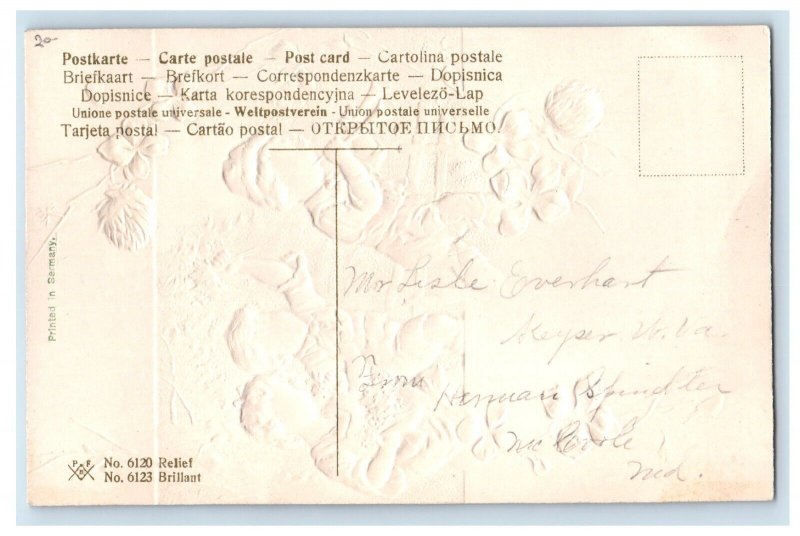 20-
Postkarte — Carte postale — Post card — Cartolina postale
Briefkaart — Brefkort — Correspondenzkarte — Dopisnica
Dopisnice — Karta korespondencyjna — Levelező-Lap
Unione postale universale - Weltpostverein - Union postale universelle
Tarjeta postal — Cartão postal — ОТКРЫТОЕ ПИСЬМО.
Printed in Germany.
Mr Leslie Everhart
Keyser W. Va.
From
Herman Spindler
Mc Coole
Md.
P F
B
No. 6120 Relief
No. 6123 Brillant